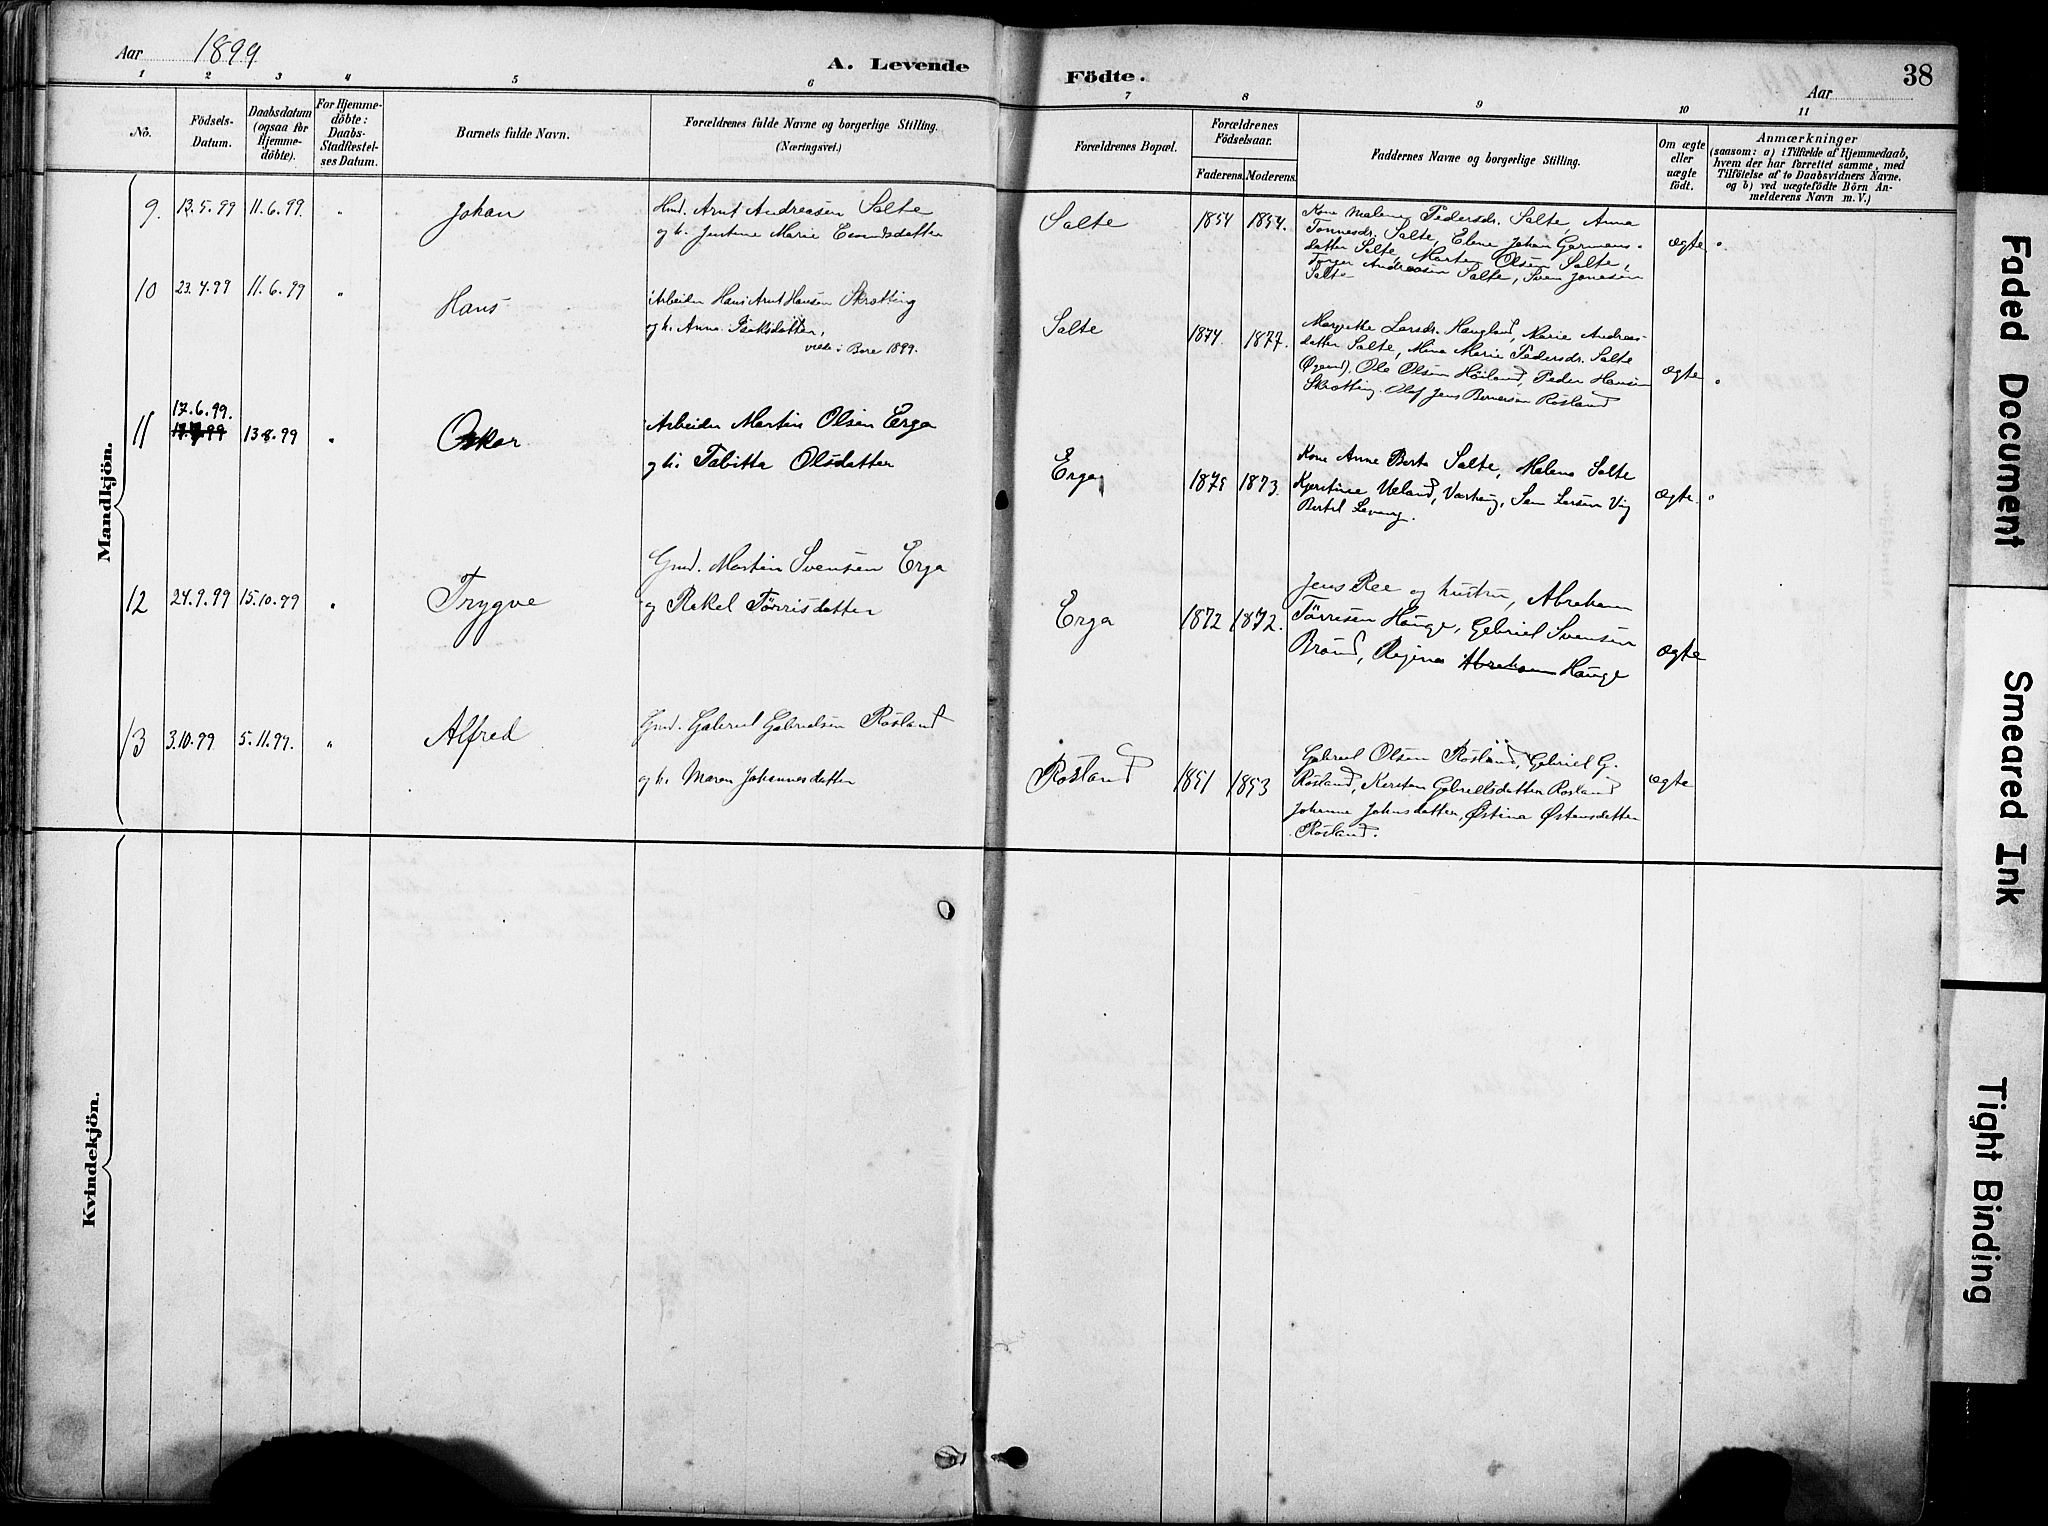 Aar 1899
A. Levende
Födte.
38
Aar
1 2 3 4 5 6 7 8 9 10 11
No.
Födsels-
Datum.
Daabsdatum
(ogsaa for
Hjemme-
döbte).
For Hjemme-
döbte:
Daabs-
Stadfæstel-
ses Datum.
Barnets fulde Navn.
Forældrenes fulde Navne og borgerlige Stilling.
(Næringsvei.)
Forældrenes Bopæl.
Forældrenes
Födselsaar.
Faderens. Moderens.
Faddernes Navne og borgerlige Stilling.
Om ægte
eller
uægte
födt.
Anmærkninger
(saasom: a) i Tilfælde af Hjemmedaab,
hvem der har forrettet samme, med
Tilföielse af to Daabsvidners Navne,
og b) ved uægtefödte Börn An-
melderens Navn m. V.)
Mandkjön.
9. 13.5.99 11.6.99. " Johan
Arnt Andreasen Salte
og h. Justine Marie
Salte 1854 1854.
Kone Malene Pedersdr. Salte, Anna
Tønnesdr. Salte, Elene Johan Germans-
datter Salte, Marten Olsen Salte,
Torger Andreasen Salte, Sven Jonesen
Salte
ægte "
10 23.4.99 11.6.99 " Hans
Arbeider Hans Arnt Hansen Skrøtting
og h. Anna Isaksdatter,
viede i Bore 1899.
Salte 1874. 1877.
Margrethe Larsdr. Haugland, Marie Andreas-
datter Salte, Mina Marie Pedersdr. Salte
Ole Olsen Høiland, Peder Hansen
Skrøtting. Olaf Jens Bernersen Rosland
ægte "
11 17.6.99. 13.8.99 " Oskar
Arbeider Martin Olsen Erga
og h. Tabitta Olsdatter
Erga 1875 1873.
Kone Anne Berta Salte, Malena Salte
Kjerstine Ueland, Varhaug, Sem Larsen Vig
Bertel
ægte. "
12 24.9.99 15.10.99 " Trygve
Grd. Martin Svensen Erga
og Rakel Tørrisdatter
Erga 1872 1872.
Jens Ree og hustru, Abraham
Tørresen Hauge, Gabriel Svensen
Brønd, Regine Abraham Hauge
ægte
13 3.10.99 5.11.99. " Alfred
Grd. Gabriel Gabrielsen Rosland
og h. Maren Johannesdatter
Rosland 1851 1853
Gabriel Olsen Rosland, Gabriel G.
Rosland, Karsten Gabrielsdatter Rosland
Johanne Johnsdatter, Østina Østensdatter
Rosland.
ægte
Kvindekjön.
Faded Document
Smeared Ink
Tight Binding